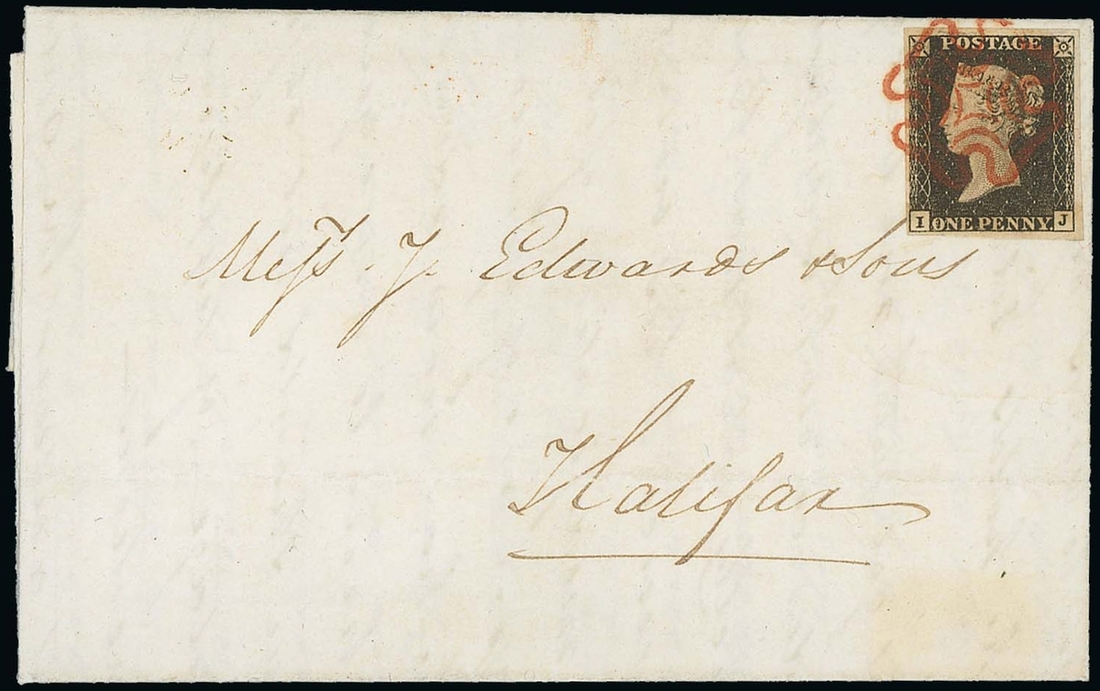 POSTAGE
I ONE PENNY J
Messrs. J. Edwards & Sons
Halifax